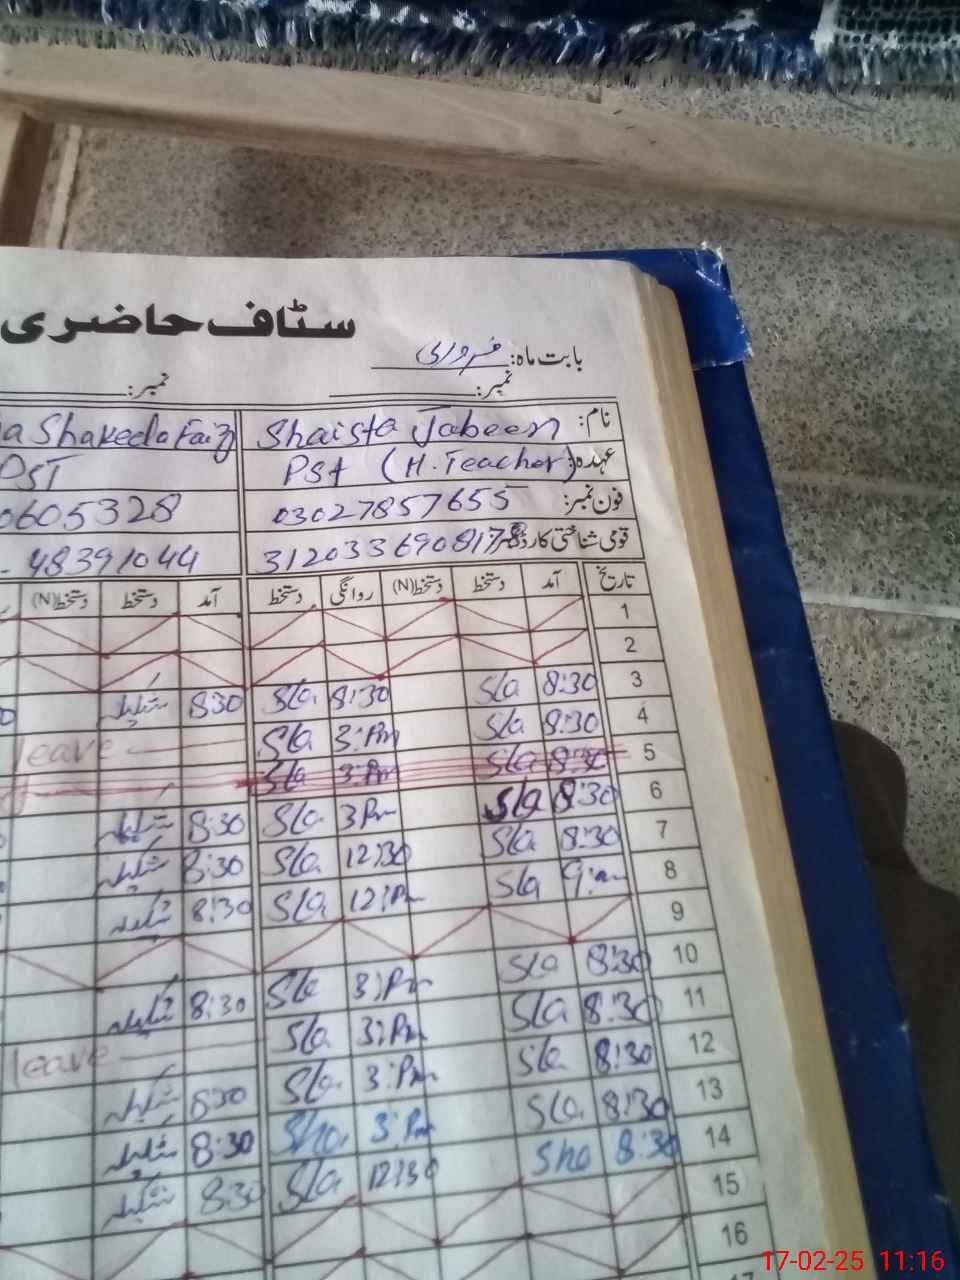 سٹاف حاضری
بابت ماہ: فروری
نمبر: نمبر:
نام: Shaista Jabeen a Shakeela Faiz
عہدہ: Pst (H.Teacher) PST
فون نمبر: 03027857655 0605328
قومی شناختی کارڈ نمبر: 3120336908178 48391044
تاریخ آمد دستخط دستخط(N) روانگی دستخط آمد دستخط دستخط(N)
1
2
3 8:30 Sla 8:30 Sla 8:30 شکیلہ
4 8:30 Sla 3:Pm Sla leave
5 8:30 Sla 3:Pm Sla
6 8:30 Sla 3Pm Sla 8:30 شکیلہ
7 8:30 Sla 12:30 Sla 8:30 شکیلہ
8 9:am Sla 12:Pm Sla 8:30 شکیلہ
9
10 8:30 Sla 3:Pm Sla 8:30 شکیلہ
11 8:30 Sla 3:Pm Sla leave
12 8:30 Sla 3:Pm Sla 8:30 شکیلہ
13 8:30 Sla 3:Pm Sha 8:30 شکیلہ
14 8:30 Sha 12:30 Sla 8:30 شکیلہ
15
16
17
17-02-25 11:16